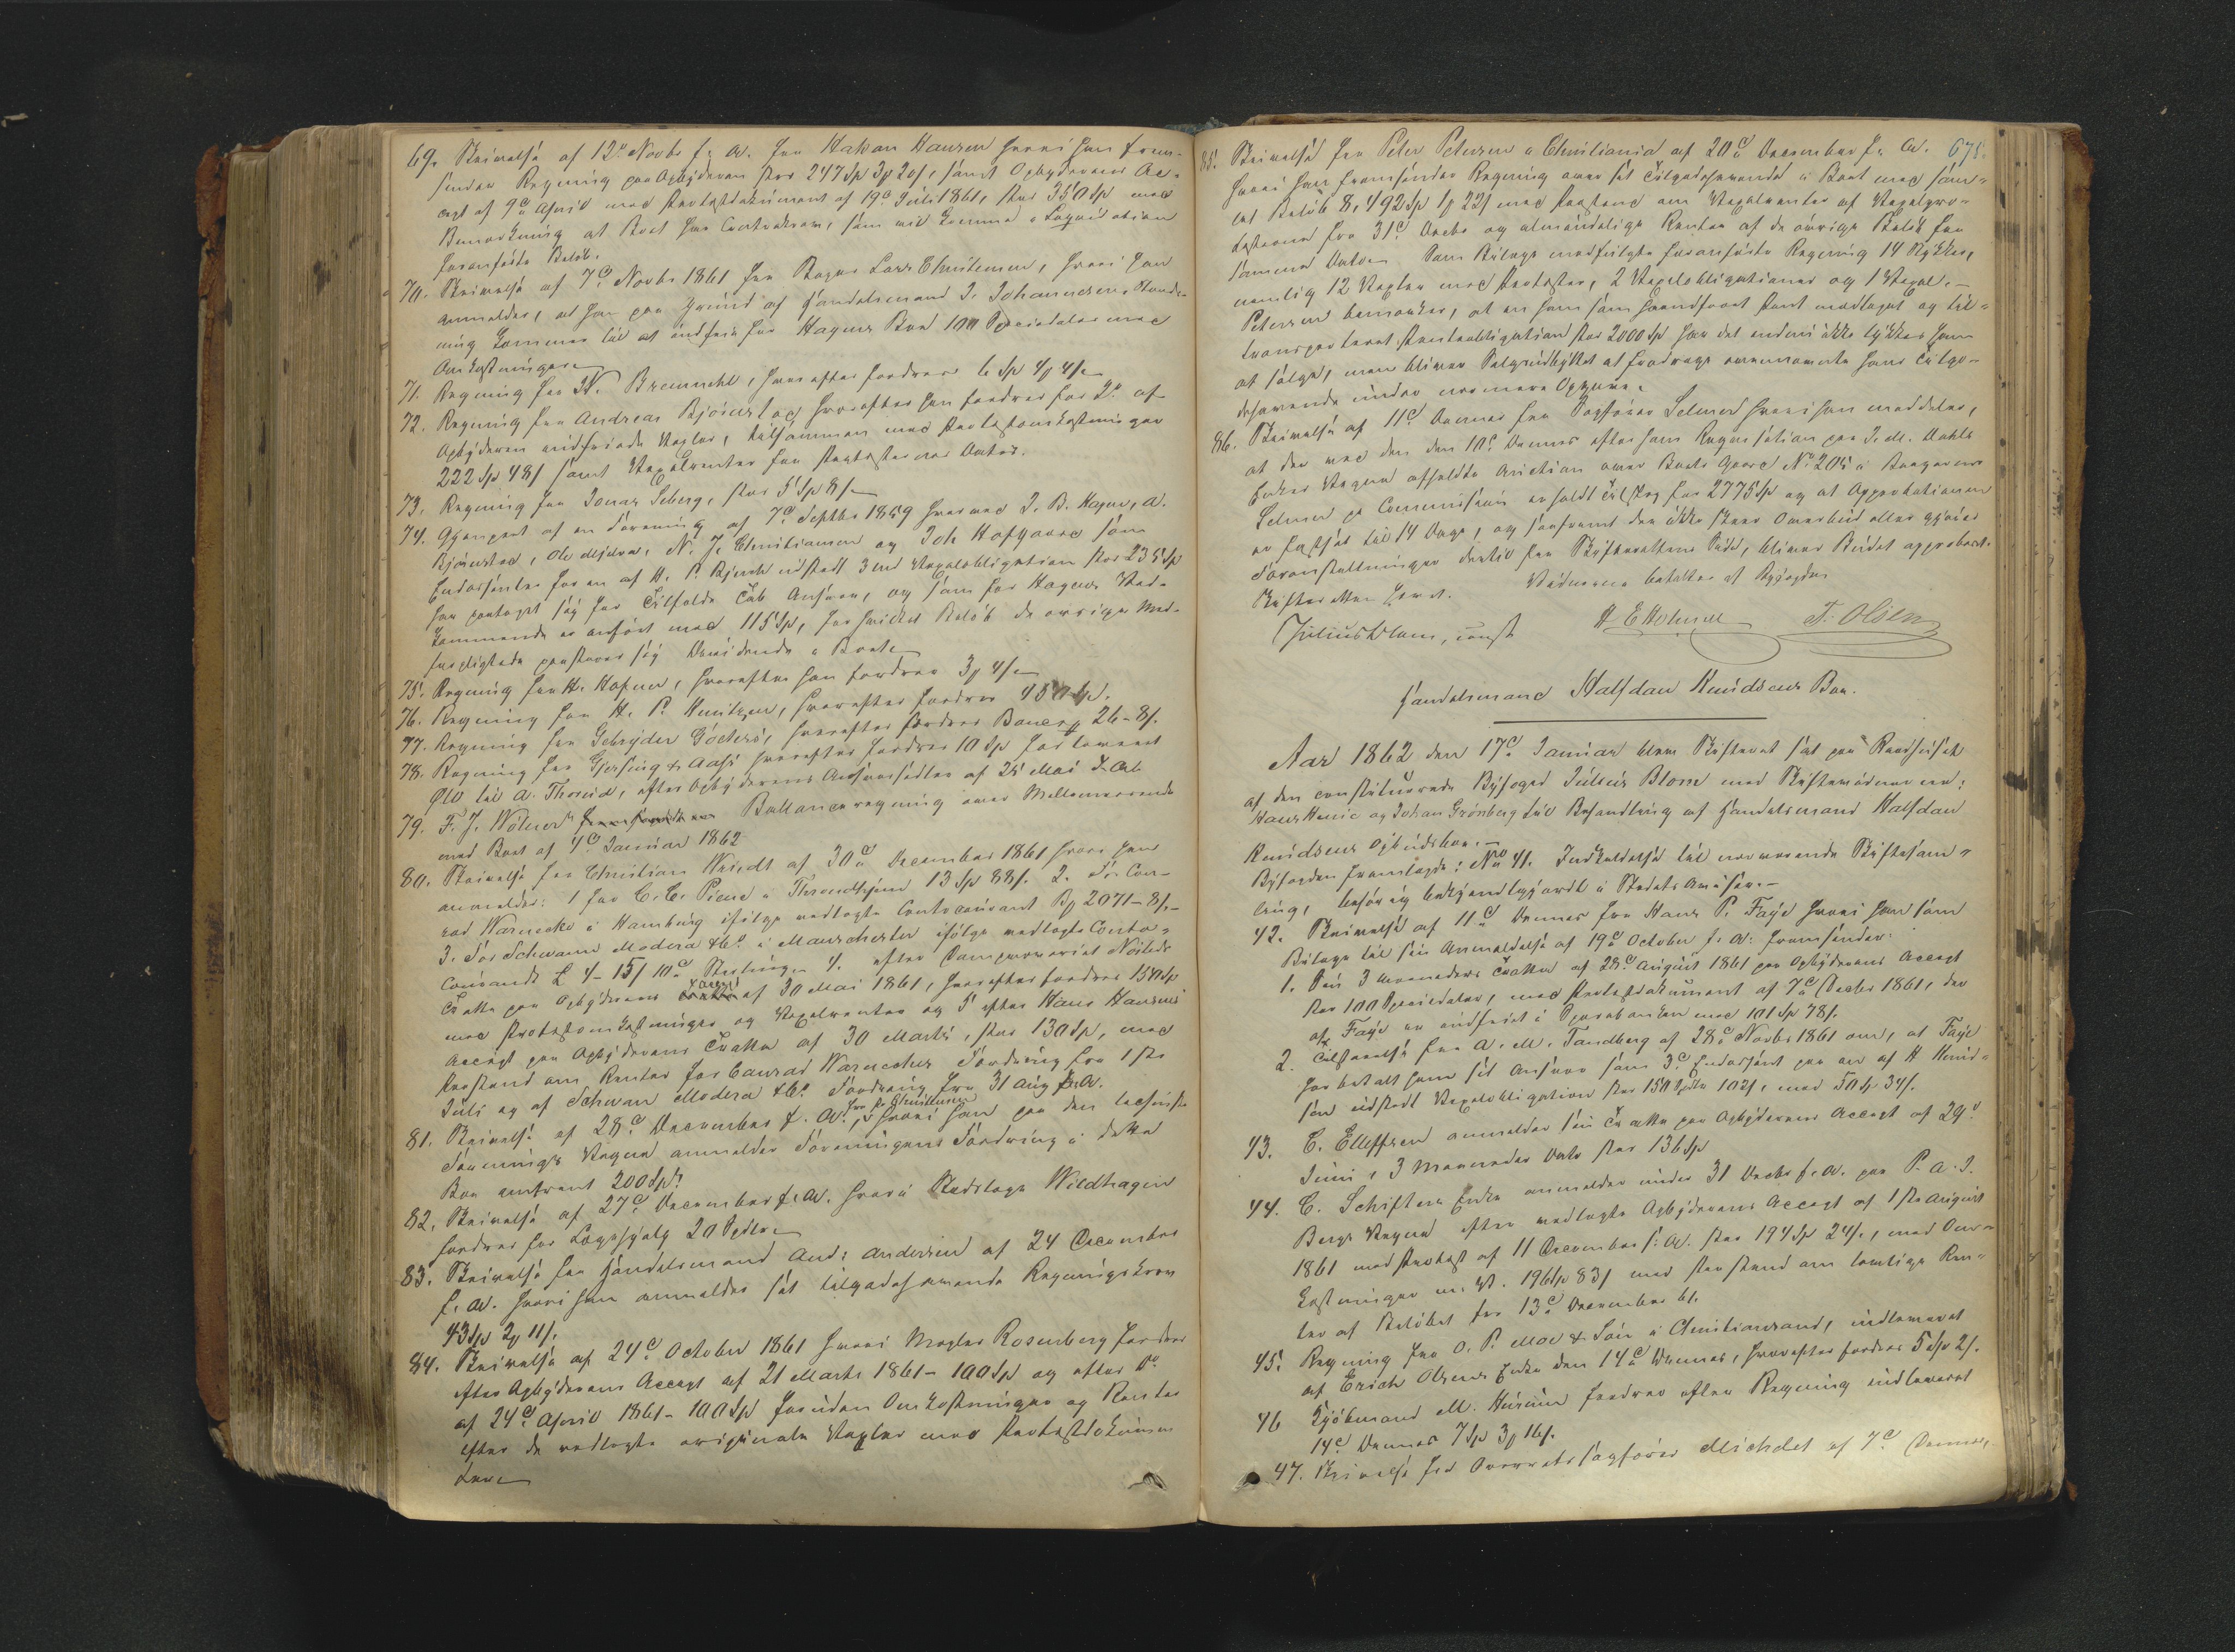 69. Skrivelse af 12te Novbr f. A. fra Hakon Hansen hvori han frem-
sender Regning paa Opbyderen stor 247 Sp 3 20 s, samt Opbyderens Ac-
cept af 9de April med Protestdokument af 19de Juli 1861, stor 350 Sp med
Bemærkning at Boet har Contrakrav, som vil komme i Liquidation
foranførte Beløb.
70. Skrivelse af 7de Novbr 1861 fra Lars Christensen, hvori han
anmelder, at han paa Grund af Handelsmand J. Johannesens
ning kommer til at indfri for Hagens Boe 100 Speciedaler med
Omkostninger.
71. Regning fra Bremnehl, hvorefter fordres 6 Sp 4 4 s
72. Regning fra Andreas Bjørnstad hvorefter han fordrer for af
Opbyderen indfriede Vexler, tilsammen med Protestomkostninger
222 Sp 48 s samt Vexelrenter fra Protesternes Datoer.
73. Regning fra Jonas Seberg, stor 5 Sp 8 s
74. Gjenpart af en Forening af 7de Septbr 1859 hvorved J. B. Hagen, A.
Bjørnstad, Ole N. J. Christiansen og Joh Hofgaard som
Endossenter for en af H. P. Bjerch udstedt Vexelobligation stor 235 Sp
har paataget sig for Tilfælde Tab Ansvar, og som for Hagens Ved-
kommende er anført med 115 Sp, for hvilket Beløb de øvrige Med-
forpligtede paastaaer sig Dividende i Boet.
75. Regning fra H. Hafner, hvorefter han fordrer 3 4 s
76. Regning fra H. P. hvorefter fordres 450 Sp.
77. Regning fra Gebrüder hvorefter fordres Banco 26-8 s.
78. Regning fra Gjersing & Aass hvorefter fordres 10 Sp for leveret
Øl til A. efter Opbyderens Anviisseddel af 25 Mai f. A.
79. F. J. Wölner Ballanceregning over Mellemværende
med Boet af 4de Januar 1862
80. Skrivelse fra Christian af 30de December 1861 hvori han
anmelder: 1 for C. C. i Throndhjem 13 Sp 88 s. 2. For Con-
rad Warnecke i Hamburg ifølge vedlagte Contocourant 2071-8 s.
3. For Schwann Modera & Co. i Manchester ifølge vedlagte Conto-
Courant £ 4-15 s 10 d Sterling. 4. efter
Tratte paa Opbyderens af 30 Mai 1861, hvorefter fordres 150 Sp
med Protestomkostninger og Vexelrenter og 5 efter Hans Hansens
Accept paa Opbyderens Tratte af 30 Marts, stor 130 Sp, med
Paastand om Renter for Conrad Warneckes Fordring fra 1ste
Juli og af Schwann Modera & Co. Fordring fra 31 Aug f. A.
81. Skrivelse af 28de December f. A. hvori han paa den
Forenings Vegne anmelder Foreningens Fordring i dette
Boe omtrent 200 Sp
82. Skrivelse af 27de December f. A. hvori Stadslæge Wildhagen
fordrer for Lægehjælp 20 Spdlr.
83. Skrivelse fra Handelsmand And: Andersen af 24 December
f. A. hvori han anmelder sit tilgodehavende Regningskrav
43 Sp 2 11 s.
84. Skrivelse af 24de October 1861 hvori Mægler Rosenberg fordrer
efter Opbyderens Accept af 21 Marts 1861 - 100 Sp og efter do
af 24de April 1861 - 100 Sp foruden Omkostninger og Renter
efter de vedlagte originale Vexler med Protestdokumen-
ter.
675.
85. Skrivelse fra Peter Petersen i Christiania af 20de December f. A.
hvori han fremsender Regning over sit Tilgodehavende i Boet med sam-
let Beløb 8,492 Sp 1 22 s med Paastand om Vexelrenter af Vexelpro-
testerne fra 31te Decbr og almindelige Renter af de øvrige Beløb fra
samme Dato. Som Bilage medfulgte foranførte Regning 14 Stykker,
nemlig 12 Vexler med Protester, 2 Vexelobligationer og 1 Vexel.-
Petersen bemærker, at en ham som haandfaaet Pant meddelt og til-
transporteret Panteobligation stor 2000 Sp har det endnu ikke lykkes ham
at sælge, men bliver Salgsudbyttet at fradrage ovennævnte hans Tilgo-
dehavende under nærmere Opgjør.
86. Skrivelse af 11te Dennes fra Sagfører Selmer hvori han meddeler,
at der ved den den 10de Dennes efter hans Requisition paa J. M. Dahls
Enkes Vegne afholdte Auction over Boets Gaard No 205 i
Selmer pr Commission erholdt Tilslag for 2775 Sp og at Approbationen
er fastsat til 14 Dage, og saafremt der ikke skeer Overbud eller gjøres
Forestillinger derfor fra Skifterettens Side, bliver Budet approberet.
Vidnerne betaltes af Byfogden
Skifteretten hævet.
Julius Blom, const
H E Holmsen T. Olsen
Handelsmand Halfdan Knudsens Boe.
Aar 1862 den 17de Januar blev Skifteret sat paa Raadhuset
af den constituerede Byfoged Julius Blom med Skiftevidnerne:
Hans Henie og Johan Grønberg til Behandling af Handelsmand Halfdan
Knudsens Opbudsboe.-
Byfogden fremlagde: No 41. Indkaldelse til nærværende Skiftesam-
ling, behørig bekjendtgjort i Stedets Aviser.-
42. Skrivelse af 11te Dennes fra Hans P. Faye hvori han som
Bilage til sin Anmeldelse af 19de October f. A. fremsender:
1. Sin 3 Maaneders Tratte af 28de August 1861 paa Opbyderens Accept
stor 100 Speciedaler, med Protestdokument af 7de Decbr 1861, der
af Faye er indfriet i Sparebanken med 101 Sp 78 s.
2. Tilstaaelse fra A. M. Tandberg af 28de Novbr 1861 om, at Faye
har betalt ham sit Ansvar som 3de Endossent paa en af H Knud-
sen udstedt Vexelobligation stor 150 Spdlr 102 s, med 50 Sp 34 s.
43. C. Ellefsen anmelder sin Tratte paa Opbyderens Accept af 29de
Juni, 3 Maaneder Dato stor 136 Sp
44. C. Schifters Enke anmelder under 31 Decbr f. A. paa P. A. J.
Bergs Vegne efter vedlagte Opbyderens Accept af 1ste August
1861 med Protest af 11 December f. A. stor 194 Sp 24 s., med Om-
kostninger m. V. 196 Sp 83 s med Paastand om lovlige Ren-
ter af Beløbet fra 13de December 61.
45. Regning fra O. P. Moe & Søn i Christiansand, indleveret
af Erich Olsens Enke den 14de Dennes, hvorefter fordres 5 Sp 2 s.
46 Kjøbmand M. Husum fordrer efter Regning indleveret
14de Dennes 7 Sp 3 16 s.
47. Skrivelse fra Overretssagfører Michelet af 7de Dennes,